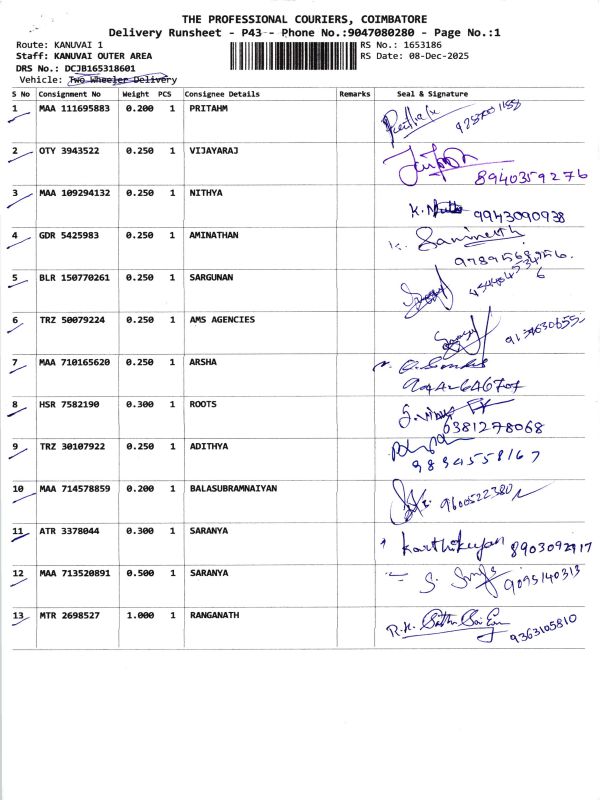 THE PROFESSIONAL COURIERS, COIMBATORE
Delivery Runsheet - P43 - Phone No.:9047080280 - Page No.:1
Route: KANUVAI 1 RS No.: 1653186
Staff: KANUVAI OUTER AREA RS Date: 08-Dec-2025
DRS No.: DCJB165318601
Vehicle: Two Wheeler Delivery
S No Consignment No Weight PCS Consignee Details Remarks Seal & Signature
1 MAA 111695883 0.200 1 PRITAHM
2 OTY 3943522 0.250 1 VIJAYARAJ 8940359276
3 MAA 109294132 0.250 1 NITHYA K. 9943090938
4 GDR 5425983 0.250 1 AMINATHAN
5 BLR 150770261 0.250 1 SARGUNAN
6 TRZ 50079224 0.250 1 AMS AGENCIES
7 MAA 710165620 0.250 1 ARSHA
8 HSR 7582190 0.300 1 ROOTS 6381278068
9 TRZ 30107922 0.250 1 ADITHYA
10 MAA 714578859 0.200 1 BALASUBRAMNAIYAN 9600522380
11 ATR 3378044 0.300 1 SARANYA Karthikeyan
12 MAA 713520891 0.500 1 SARANYA 9095140313
13 MTR 2698527 1.000 1 RANGANATH R.K. 9363105810